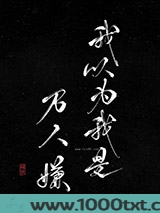 我以为我是
万人嫌
www.1000txt.com